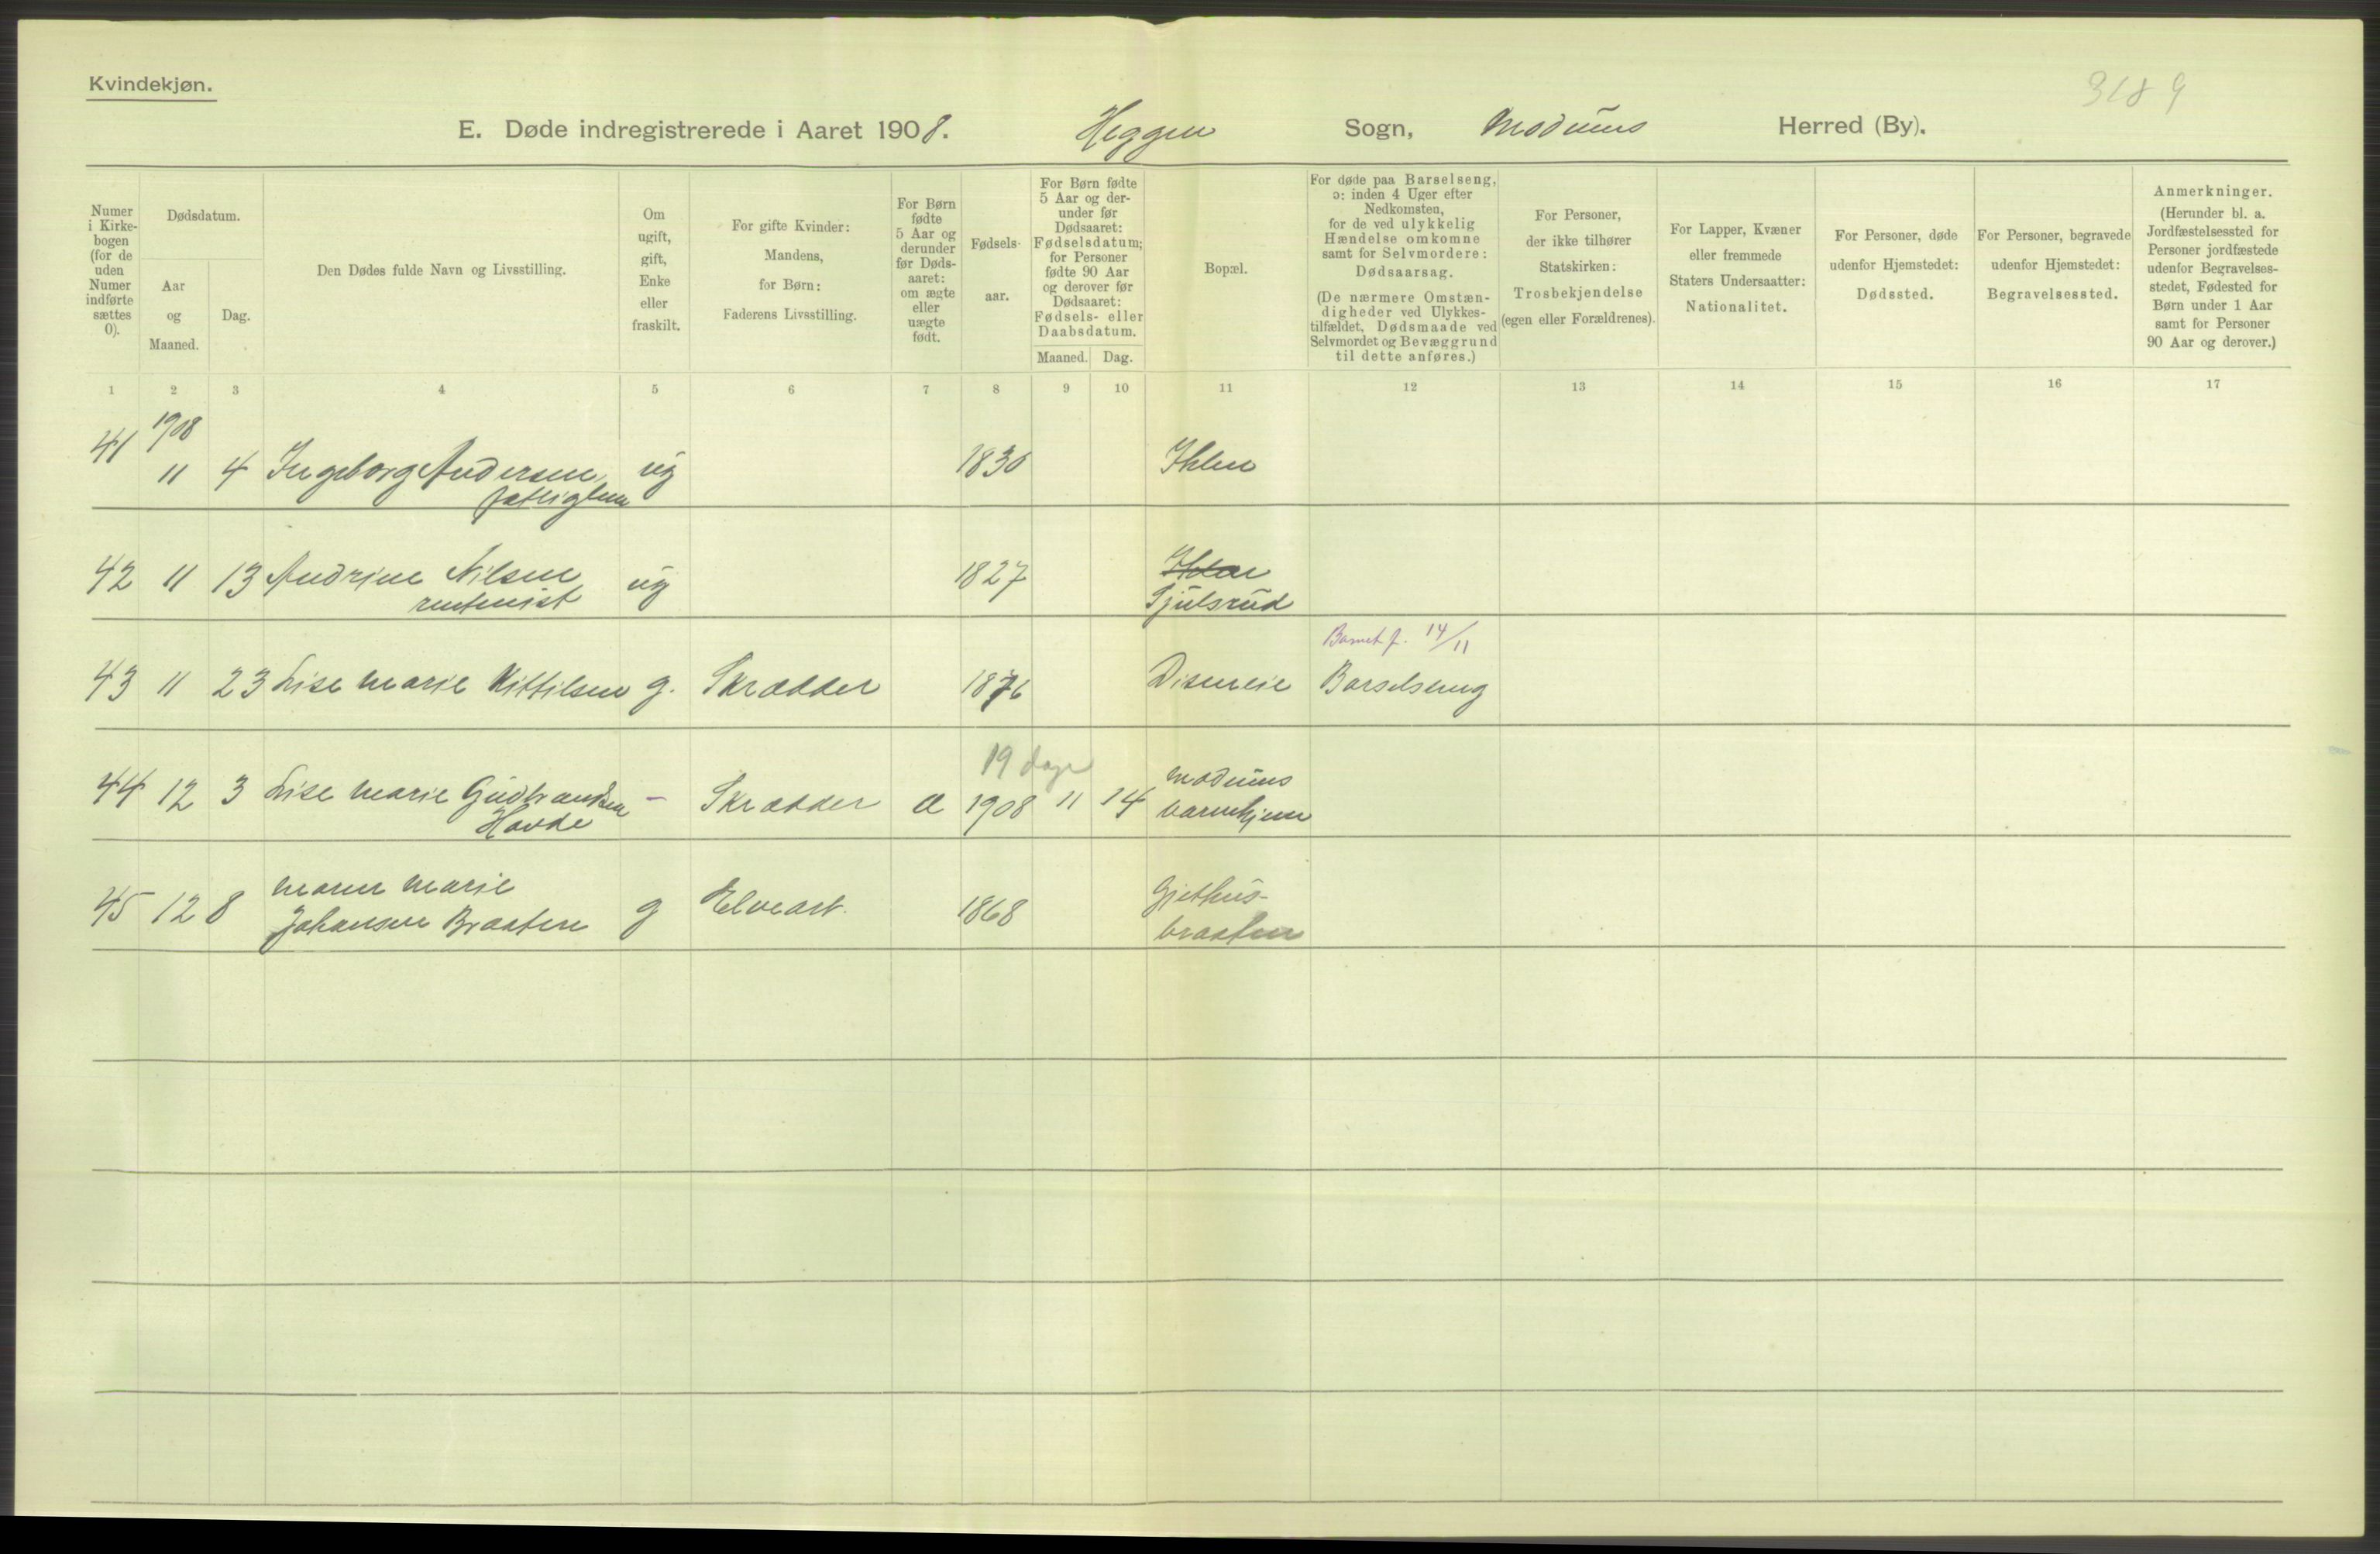 Kvindekjøn.
3189
E. Døde indregistrerede i Aaret 1908. Heggen Sogn, Modums Herred (By).
Numer
i Kirke-
bogen
(for de
uden
Numer
indførte
sættes
0).
Dødsdatum.
Aar
og
Maaned.
Dag.
Den Dødes fulde Navn og Livsstilling.
Om
ugift,
gift,
Enke
eller
fraskilt.
For gifte Kvinder:
Mandens,
for Børn:
Faderens Livsstilling.
For Børn
fødte
5 Aar og
derunder
før Døds-
aaret:
om ægte
eller
uægte
født.
Fødsels-
aar.
For Børn fødte
5 Aar og der-
under før
Dødsaaret:
Fødselsdatum;
for Personer
fødte 90 Aar
og derover før
Dødsaaret:
Fødsels- eller
Daabsdatum.
Maaned. Dag.
Bopæl.
For døde paa Barselseng,
ɔ: inden 4 Uger efter
Nedkomsten,
for de ved ulykkelig
Hændelse omkomne
samt for Selvmordere:
Dødsaarsag.
(De nærmere Omstæn-
digheder ved Ulykkes-
tilfældet, Dødsmaade ved
Selvmordet og Bevæggrund
til dette anføres.)
For Personer,
der ikke tilhører
Statskirken:
Trosbekjendelse
(egen eller Forældrenes).
For Lapper, Kvæner
eller fremmede
Staters Undersaatter:
Nationalitet.
For Personer, døde
udenfor Hjemstedet:
Dødssted.
For Personer, begravede
udenfor Hjemstedet:
Begravelsessted.
Anmerkninger.
(Herunder bl. a.
Jordfæstelsessted for
Personer jordfæstede
udenfor Begravelses-
stedet, Fødested for
Børn under 1 Aar
samt for Personer
90 Aar og derover.)
1 2 3 4 5 6 7 8 9 10 11 12 13 14 15 16 17
1908
41 11 4 Ingeborg Andersen ug 1830 Ihlen
fattiglem
42 11 13 Andrine Nilsen ug 1827 Ihlen
rentenist Tjulsrud
Barnet f. 14/11
43 11 23 Lise Marie Kittilsen g. Skrædder 1876 Diseneie Barselseng
19 dage
44 12 3 Lise Marie Gudbrandsen - Skrædder æ 1908 11 14 Modums
Hovde barnehjem
45 12 8 Maren Marie Gjethus-
Johansen Braaten g Elvearb. 1868 braaten